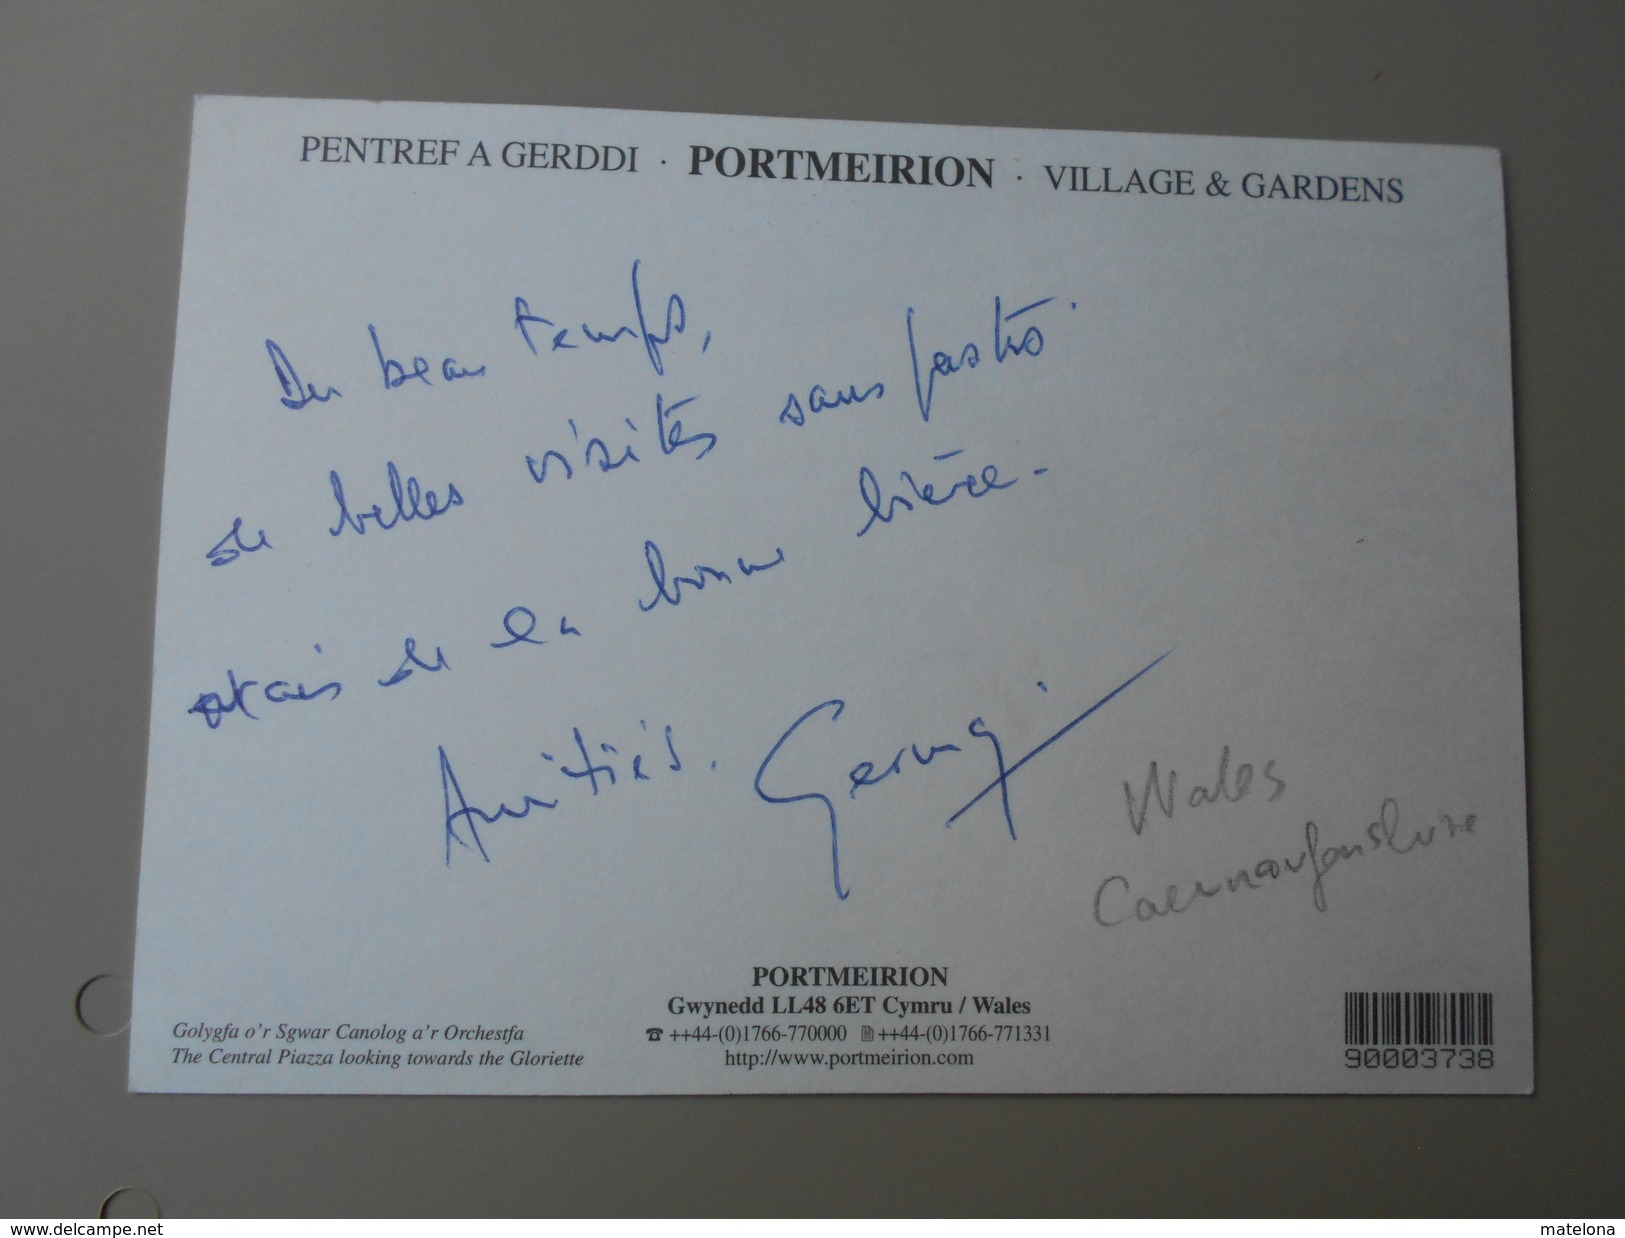 PENTREF A GERDDI · PORTMEIRION · VILLAGE & GARDENS
Du beau temps,
de belles visites sans
mais de la bonne bière -
Amitiés.
Wales
Caernarfonshire
PORTMEIRION
Gwynedd LL48 6ET Cymru / Wales
☎ ++44-(0)1766-770000 ++44-(0)1766-771331
http://www.portmeirion.com
Golygfa o'r Sgwar Canolog a'r Orchestfa
The Central Piazza looking towards the Gloriette
90003738
www.delcampe.net
matelona